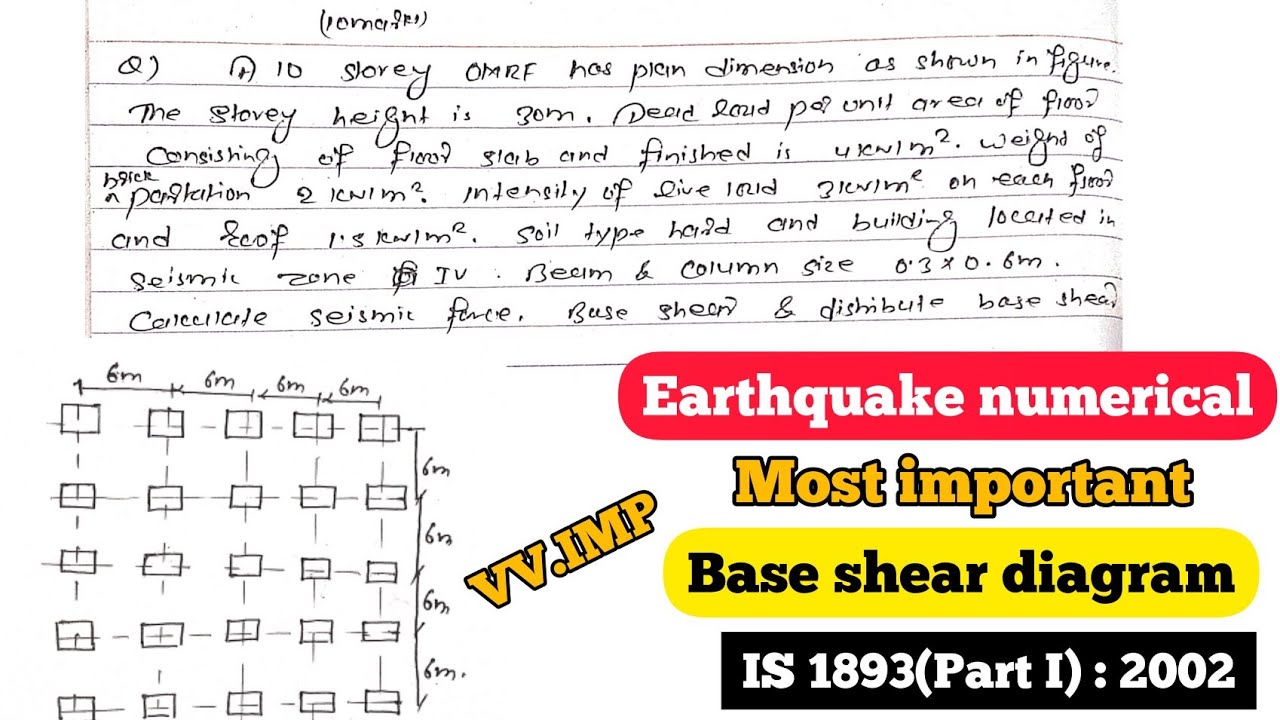 (10marks)
Q) A 10 storey OMRF has plan dimension as shown in figure.
The storey height is 30m. Dead load per unit area of floor
Consisting of floor slab and finished is 4 kN/m². weight of
brick
partation 2 kN/m². intensity of live load 3kN/m² on each floor
and roof 1.5 kN/m². Soil type hard and building located in
seismic zone IV. Beam & Column size 0.3 x 0.6m.
Calculate seismic force. Base shear & distribute base shear
6m 6m 6m 6m
6m
6m
6m
6m.
VV.IMP
Earthquake numerical
Most important
Base shear diagram
IS 1893(Part I) : 2002